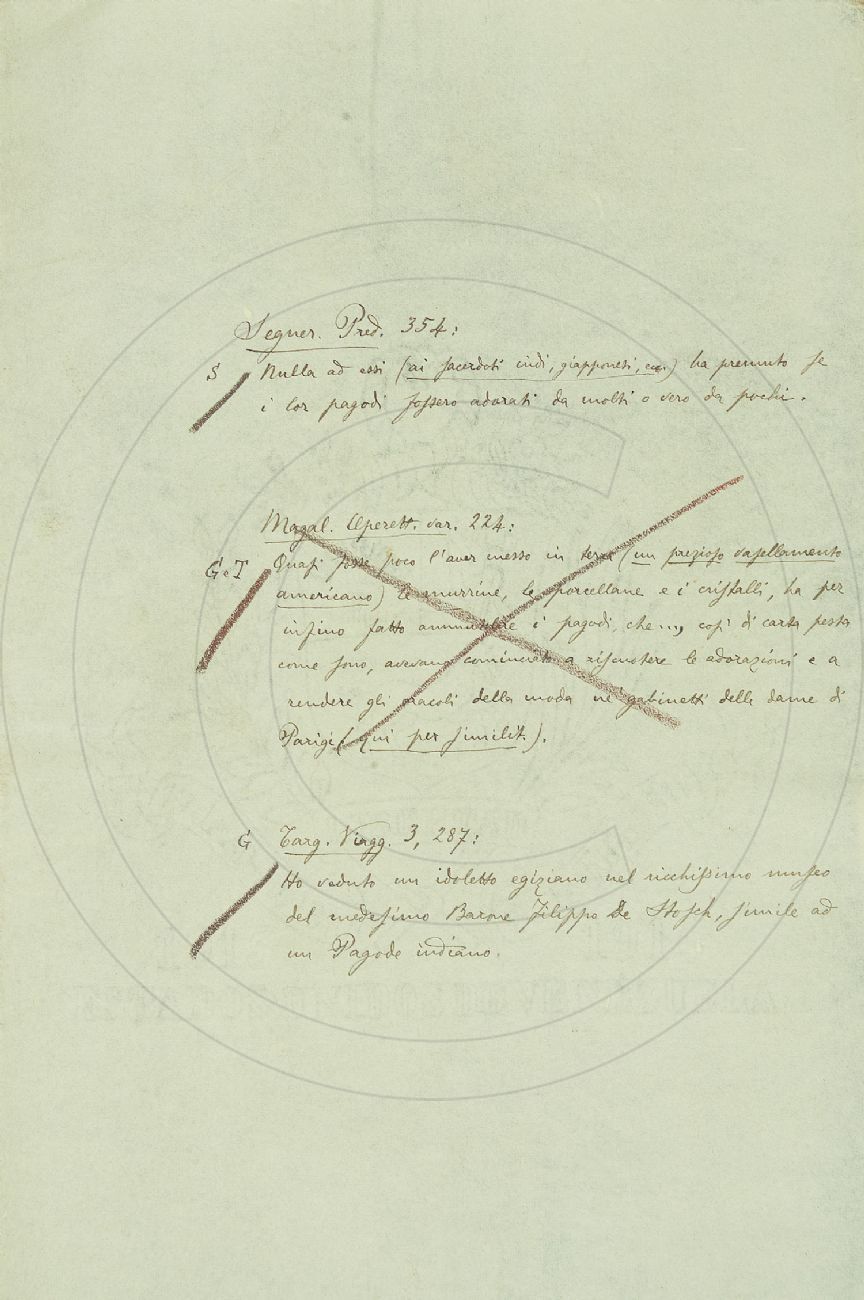 Segner. Pred. 354:
S Nulla ad essi (ai sacerdoti indi, giapponesi, ecc.) ha premuto se
i lor pagodi fossero adorati da molti o vero da pochi.
Magal. Operett. var. 224:
G e T Quasi fosse poco l'aver messo in terra (un prezioso vasellamento
americano) le murrine, le porcellane e i cristalli, ha per
infino fatto ammutolire i pagodi, che..., così di carta pesta
come sono, avevano cominciato a riscuotere le adorazioni e a
rendere gli oracoli della moda ne' gabinetti delle dame di
Parigi (qui per similit.).
G Targ. Viagg. 3, 287:
Ho veduto un idoletto egiziano nel ricchissimo museo
del medesimo Barone Filippo De Stosch, simile ad
un Pagode indiano.